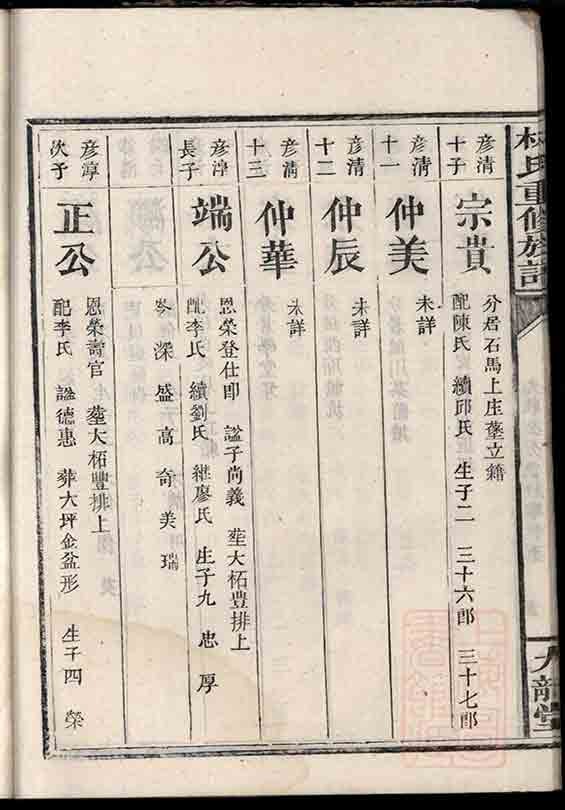 林氏重修族譜
九龍堂
彥清
十子
宗貴
分居石馬上庄塋立籍
配陳氏 續邱氏 生子二 三十六郎 三十七郎
彥清
十一
仲美
未詳
彥清
十二
仲辰
未詳
彥清
十三
仲華
未詳
彥淳
長子
端公
恩榮登仕郎 諡子尚義 塟大柘豐排上
配李氏 續劉氏 繼廖氏 生子九 忠 厚
岑 深 盛 高 奇 美 瑞
彥淳
次子
正公
恩榮壽官 塟大柘豐排上
配李氏 諡德惠 葬大坪金盆形 生子四 榮